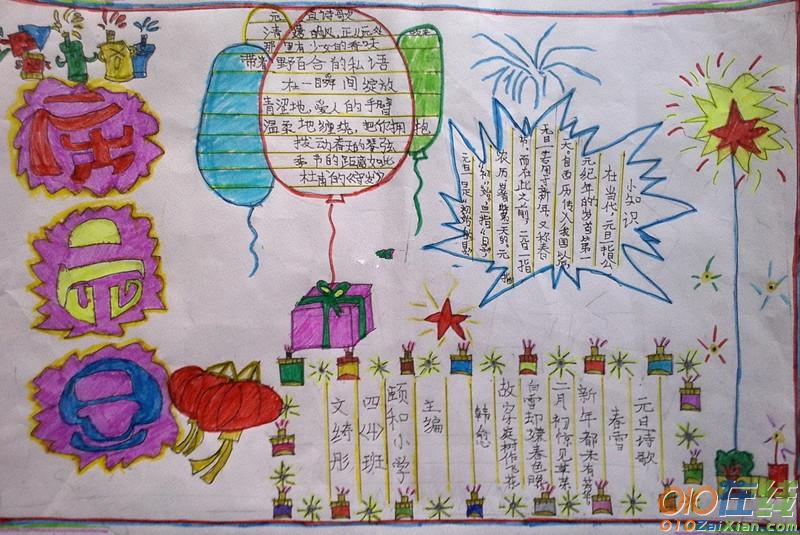 元旦诗歌
清晨的风，正从远处
那里有少女的香味
带来野百合的私语
在一瞬间绽放
青涩地，爱人的手臂
温柔地缠绕，把你拥抱
拨动春天的琴弦
季节的距离如此
杜甫的《守岁》
小知识
在当代，元旦一指公
元纪年的岁首第一
天自西历传入我国以后
元旦一
而在此之前，元旦一指
农历
元旦诗歌
春雪
新年都未有芳华
二月初惊见草芽
白雪却嫌春色晚
故穿庭树作飞花
韩愈
主编
颐和小学
四（4）班
文绮彤
010在线
010ZaiXian.com